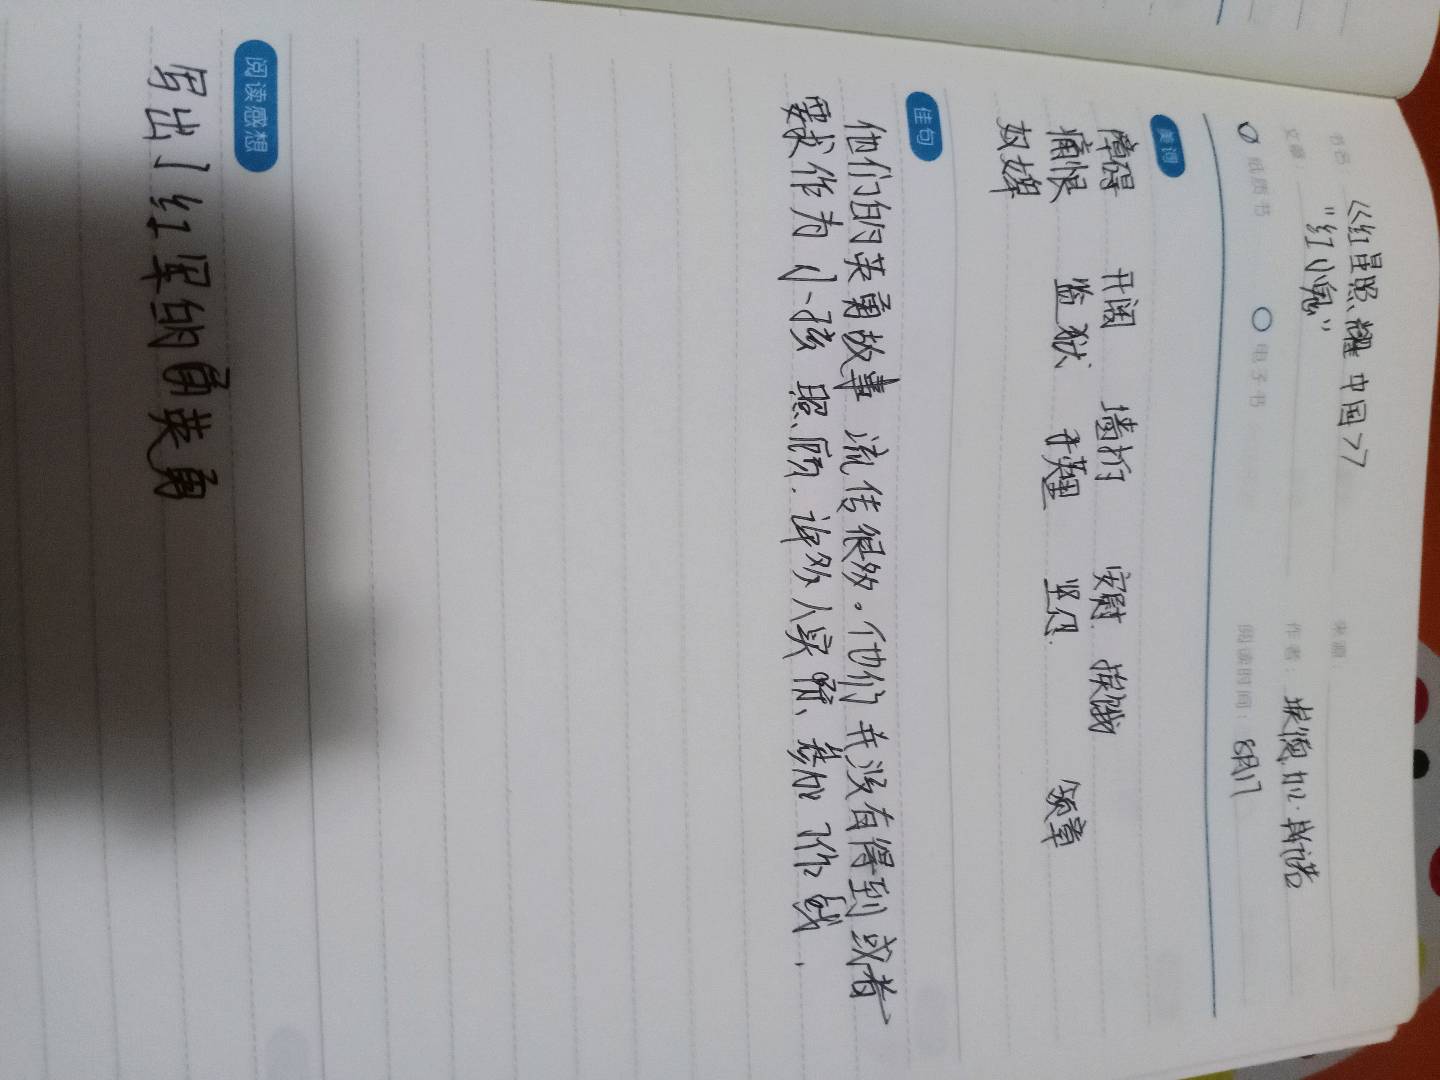 书名 《红星照耀中国》 来源:
文章 “红小鬼” 作者: 埃德加·斯诺
纸质书 电子书 阅读时间: 8月17
美词
障碍 开阔 墙 安慰 挨饿
痛恨 监狱 坚 领章
奴婢
佳句
他们的英勇故事流传很多。他们并没有得到或者
要求作为小孩照顾.许多人实际参加了作战.
阅读感想
写出了红军的勇英勇